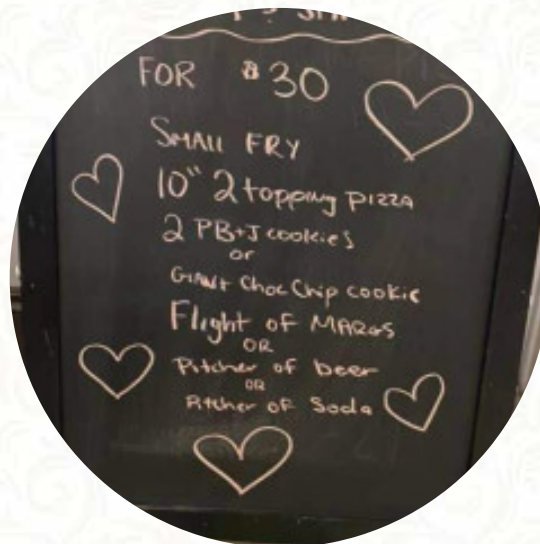 FOR $30
SMALL FRY
10" 2 topping pizza
2 PB+J cookies
or
GIANT Choc Chip cookie
Flight of MARGS
OR
Pitcher of beer
OR
Pitcher of Soda